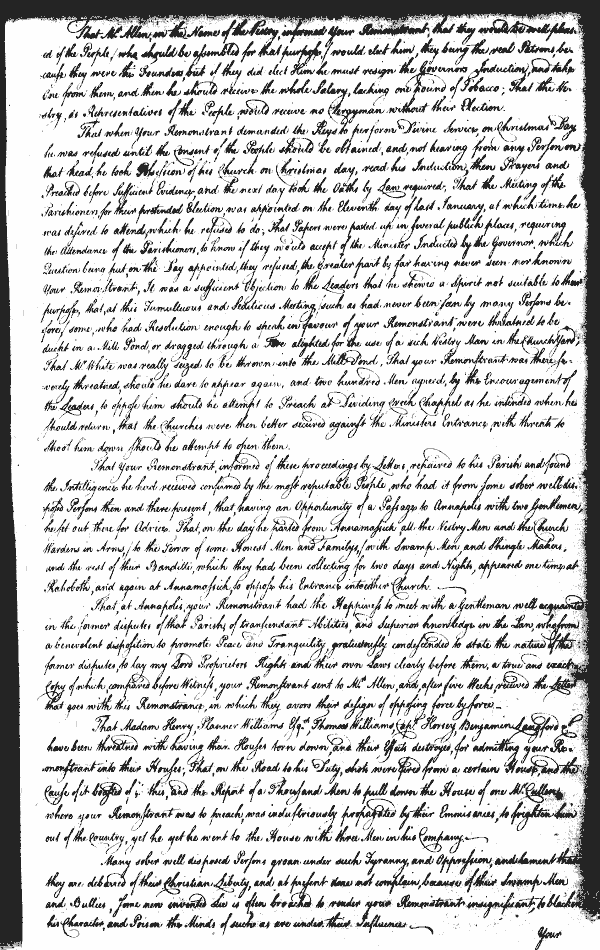 That Mr. Allen, in the Name of the Vestry, informed your Remonstrant, that they would be well pleas-
ed of the People, (who should be assembled for that purpose,) would elect him, they being the real Patrons, be-
cause they were the Founders, but if they did elect Him he must resign the Governors Induction, and take
One from them, and then he should receive the whole Salary, lacking one pound of Tobacco; That the Ve-
stry, as Representatives of the People would receive no Clergyman without their Election.
That when Your Remonstrant demanded the Keys to perform Divine Service, on Christmas Day
he was refused until the Consent of the People should be obtained, and, not hearing from any Person on
that head, he took Possession of his Church on Christmas day, read his Induction, then Prayers and
Preached before Sufficient Evidence, and the next day took the Oaths by Law required; That the Meeting of the
Parishioners for their pretended Election was appointed on the Eleventh day of last January, at which time he
was desired to attend, which he refused to do; That Papers were pasted up in several publick places, requiring
the Attendance of the Parishioners, to know if they would accept of the Minister Inducted by the Governor, which
Question being put on the Day appointed, they refused, the Greater part by far having never seen nor known
Your Remonstrant, It was a sufficient Objection to the Leaders that he shewed a Spirit not suitable to their
purpose, that, at this Tumultuous and Seditious Meeting, such as had never been seen by many Persons be-
fore, some, who had Resolution enough to speak in favour of your Remonstrant were threatned to be
duckt in a Mill Pond, or dragged through a Fire alighted for the use of a sick Vestry Man in the Church Yard;
That Mr. White was really seized to be thrown into the Mill Pond, That your Remonstrant was there se-
verely threatned, should he dare to appear again, and two hundred Men agreed, by the Encouragement of
the Leaders, to oppose him should he attempt to Preach at Dividing Creek Chappel as he intended when he
should return, that the Churches were then better secured against the Ministers Entrance, with threats to
shoot him down should he attempt to open them.
That Your Remonstrant, informed of these proceedings by Letters, repaired to his Parish and found
the Intelligence he had received confirmed by the most reputable People, who had it from some sober well dis-
posed Persons then and there present, that, having an Opportunity of a Passage to Annapolis with two Gentlemen,
he set out there for Advice. That, on the day he parted from Annamassick all the Vestry Men and the Church
Wardens in Arms, (to the Terror of some Honest Men and Familys,) with Swamp Men, and Shingle Makers,
and the rest of their Banditti, which they had been collecting for two days and Nights, appeared one time at
Rahoboth, and again at Annamassick, to oppose his Entrance into other Church.
That, at Annapolis, your Remonstrant had the Happiness to meet with a Gentleman well acquainted
in the former disputes of that Parish, of transcendant Abilities, and superior knowledge in the Law, who from
a benevolent disposition to promote Peace and Tranquility, graciously condescended to state the nature of the
former disputes, to lay my Lord Proprietors Rights and their own Laws clearly before them, a true and exact
Copy of which, compared before Witness, your Remonstrant sent to Mr. Allen, and, after five Weeks received the Letter
that goes with this Remonstrance, in which they avow their design of opposing force by force.
That Madam Henry, Planner Williams Esqr. Thomas Williams, Capt. Horsey, Benjamin Langford &c
have been threatned with having their Houses torn down, and their Effects destroyed, for admitting your Re-
monstrant into their Houses; That, on the Road to his Duty, shots were fired from a certain House, and the
Cause of it boasted of; this, and the Report of a Thousand Men to pull down the House of one Mr. Cullen,
where your Remonstrant was to preach, was industriously propagated by their Emissaries, to frighten him
out of the Country, yet he yet he went to the House with three Men in his Company.
Many sober well disposed Persons groan under such Tyranny, and Oppression, and lament that
they are debared of their Christian Liberty, and at present dare not complain, because of their Swamp Men
and Bullies, some new invented Lie is often broached to render your Remonstrant insignificant, to blacken
his Character, and Poison the Minds of such as are under their Influence.
Your